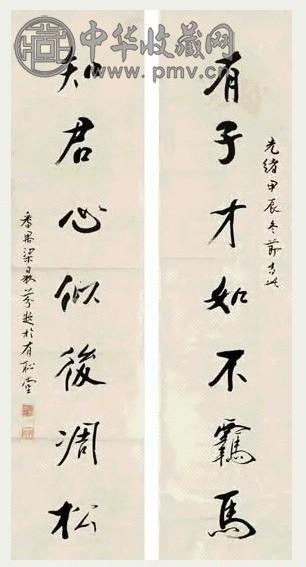 中华收藏网
www.pmv.cn
光緒甲辰冬節書此
有子才如不羈馬
知君心似後凋松
番禺梁
於有恥堂